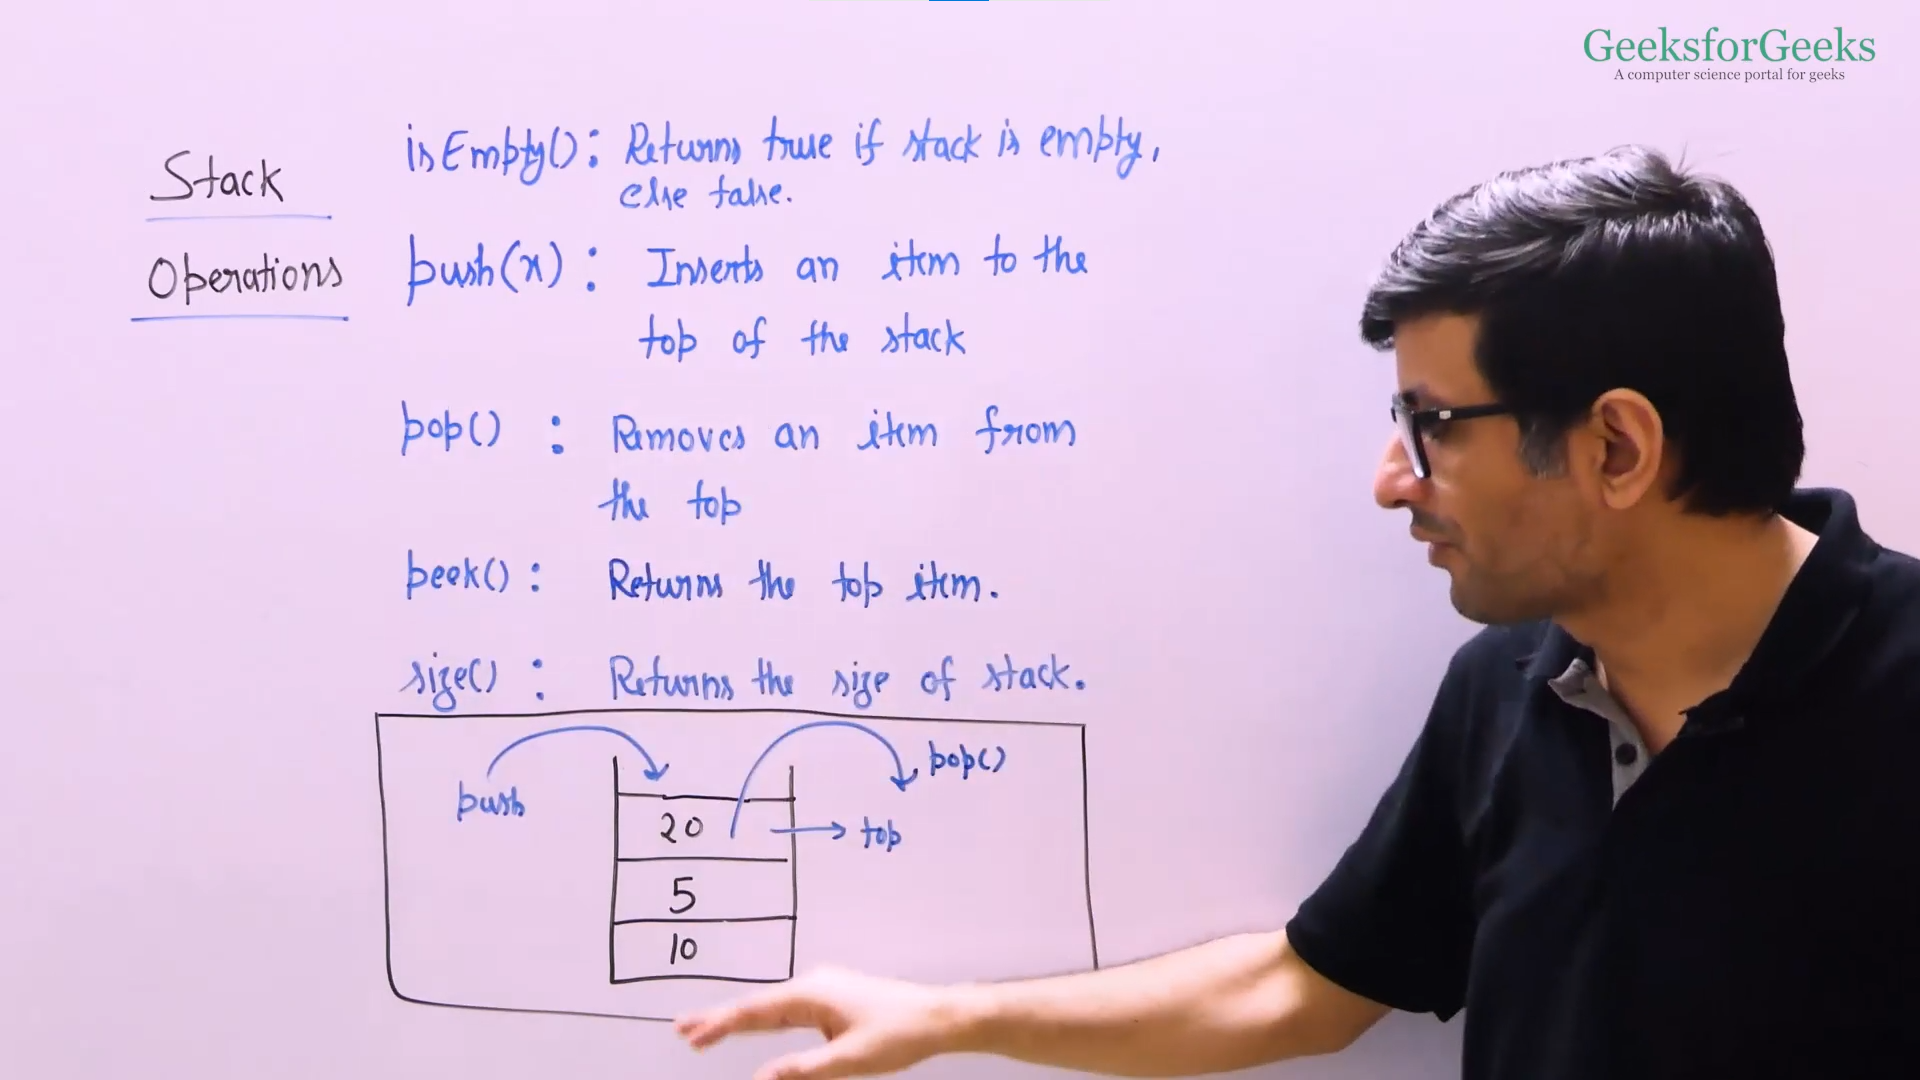 GeeksforGeeks
A computer science portal for geeks
Stack
Operations
isEmpty() : Returns true if stack is empty,
else false.
push(x) : Inserts an item to the
top of the stack
pop() : Removes an item from
the top
peek() : Returns the top item.
size() : Returns the size of stack.
push
pop()
20
top
5
10